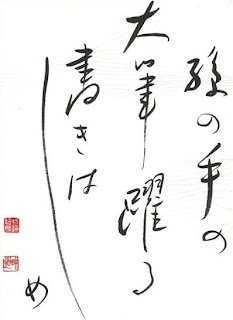 孫の手の
大筆躍る
書きは
し
め